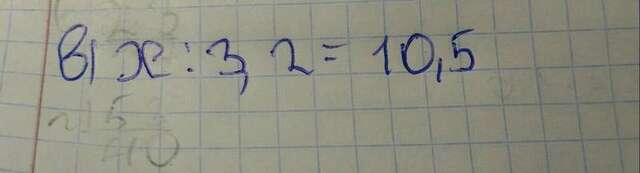 в) x : 3,2 = 10,5